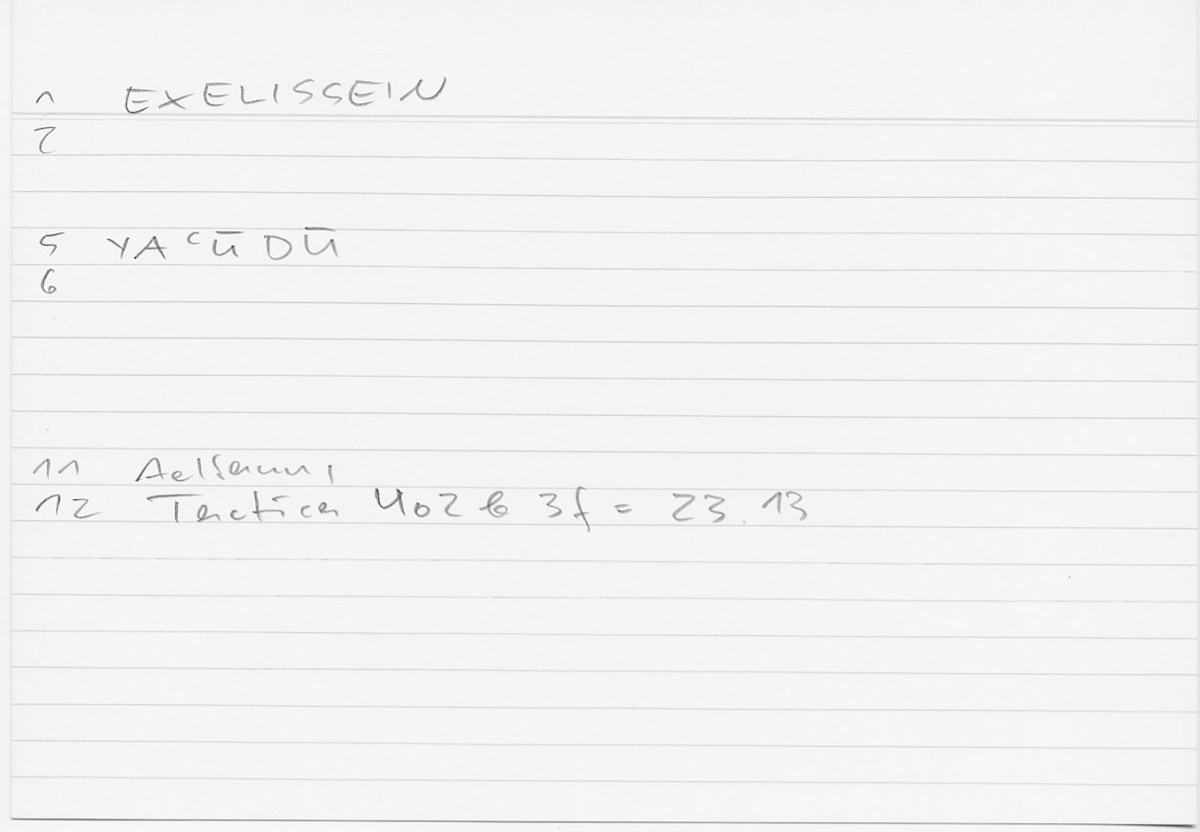 1 EXELISSEIN
2
5 YAʿŪDŪ
6
11 Aelianus,
12 Tactica 402 b 3f = 23.13